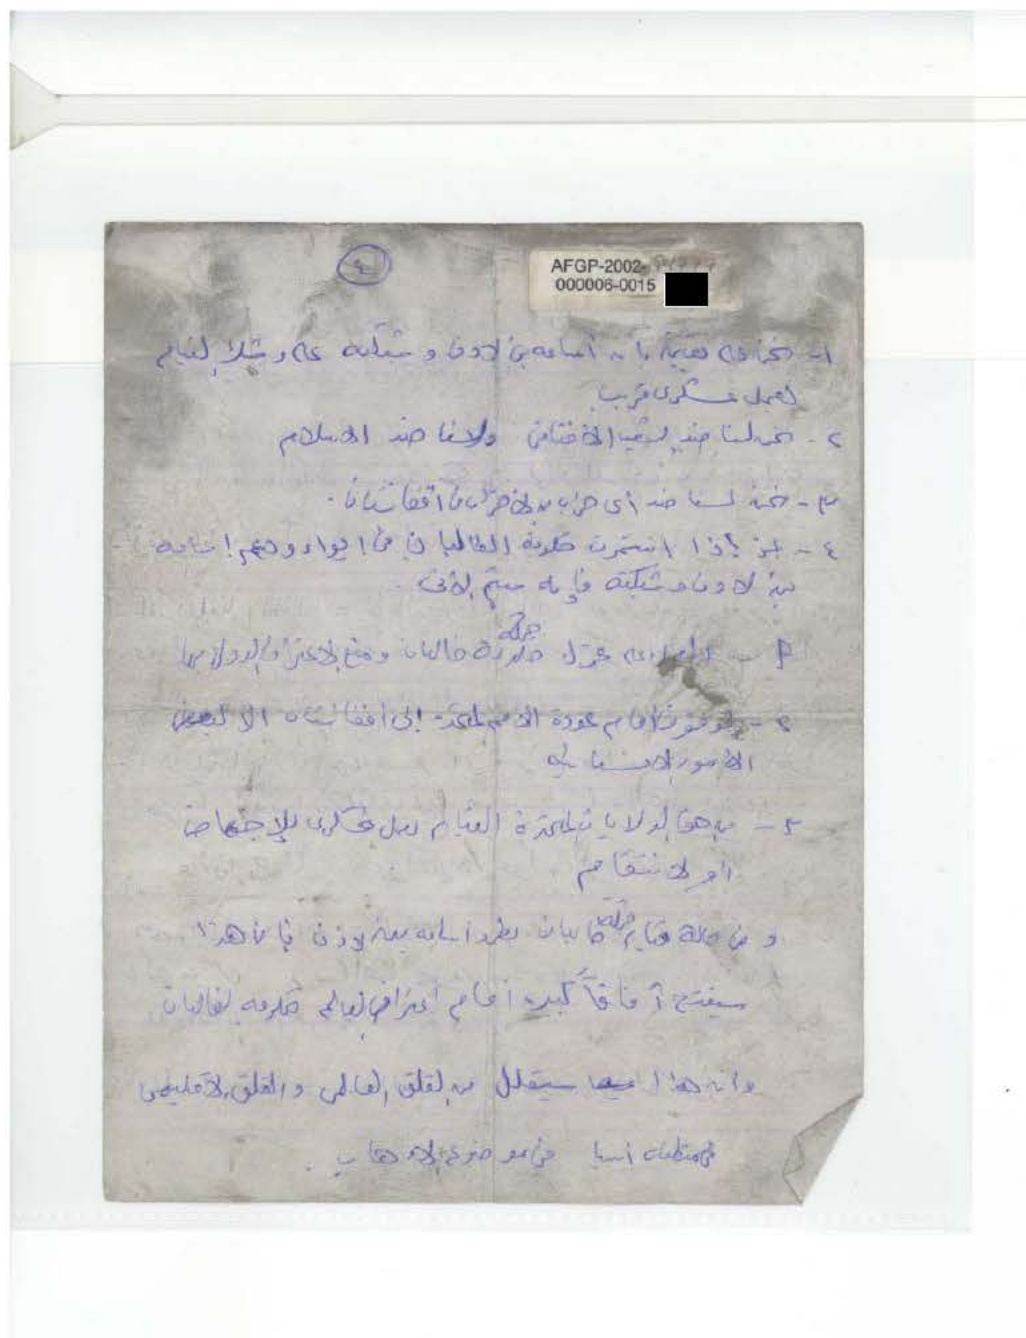 AFGP-2002-
000006-0015
١- نحن على يقين بأن أسامة بن لادن و شبكته على وشك القيام
لعمل عسكري قريب
٢- نحن لسنا ضد الشعب الأفغاني ولا ضد الاسلام
٣- نحن لسنا ضد أي حزب من الأحزاب في افغانستان .
٤- إذا استمرت حكومة الطالبان في ايواء ودعم أسامة
بن لادن وشبكته فإنه سيتم الآتي .
عزل حركة طالبان ومنع الاعتراف الدولي بها
عودة الأمم المتحدة إلى أفغانستان الا لبعض
الأمور الإنسانية
٣- من حق الولايات المتحدة القيام بعمل عسكري للإجهاض
أو لانتقام
و في حالة قيام حركة طالبان بطرد أسامة بن لادن فإن هذا
سيفتح آفاقاً كبيرة أمام اعتراف العالم حكومة لطالبان
وأن هذا سيقلل من القلق العالمي والقلق الإقليمي
في منطقة اسيا في موضوع الارهاب .